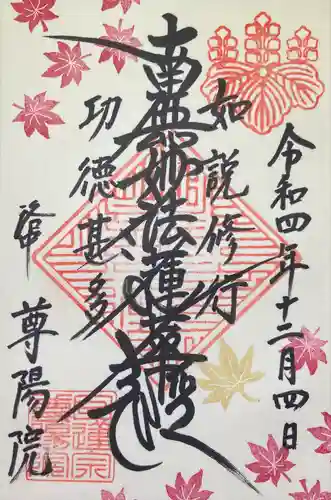 令和四年十二月四日
如説修行
南無妙法蓮華経
功徳甚多
尊陽院